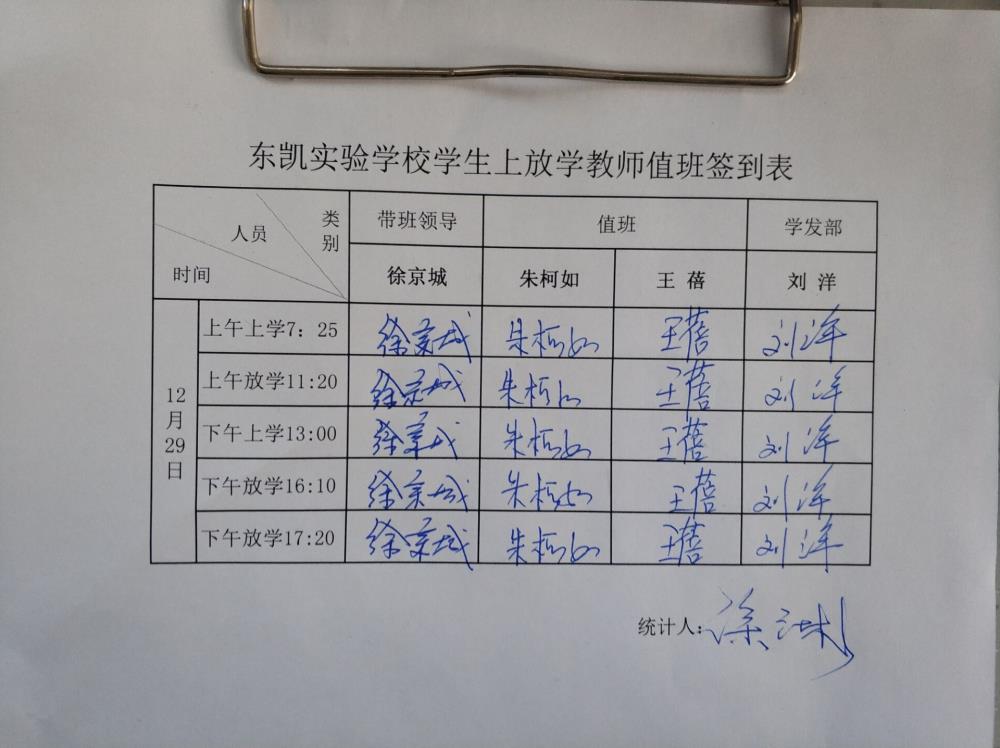 东凯实验学校学生上放学教师值班签到表
人员 类别 带班领导 值班 学发部
时间 徐京城 朱柯如 王蓓 刘洋
12月29日
上午上学7：25 徐京城 朱柯如 王蓓 刘洋
上午放学11:20 徐京城 朱柯如 王蓓 刘洋
下午上学13:00 徐京城 朱柯如 王蓓 刘洋
下午放学16:10 徐京城 朱柯如 王蓓 刘洋
下午放学17:20 徐京城 朱柯如 王蓓 刘洋
统计人：